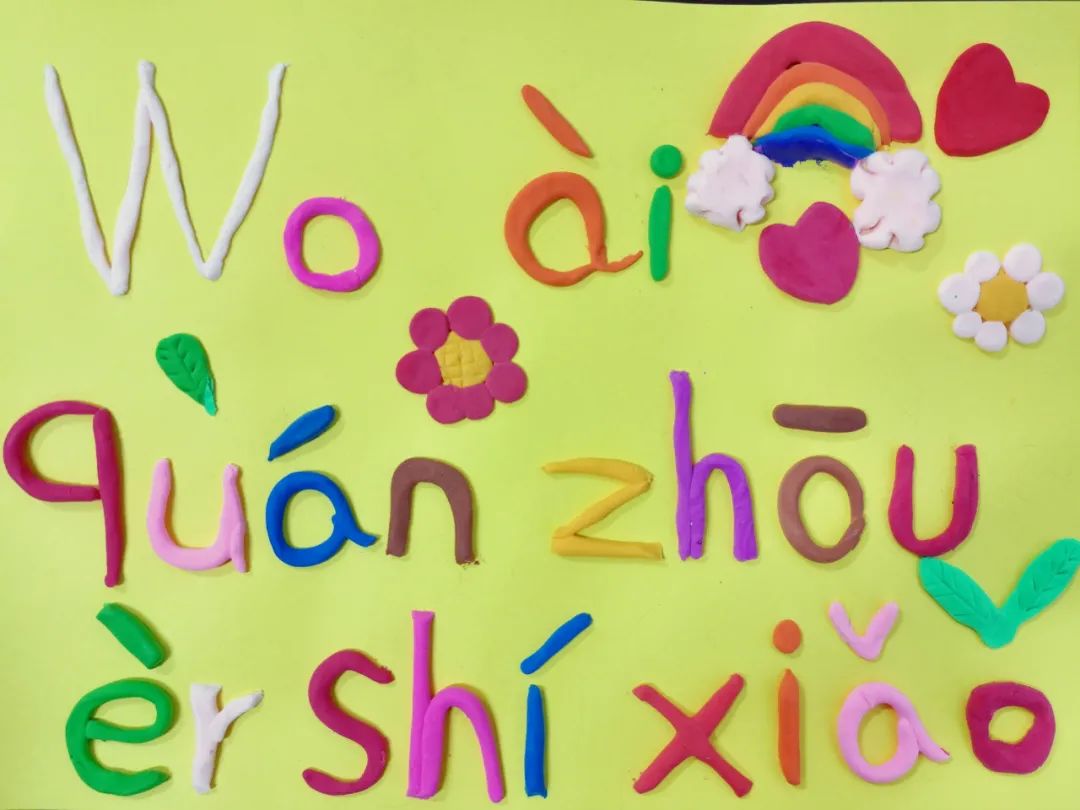 Wo ài
quán zhōu
èr shí xiǎo